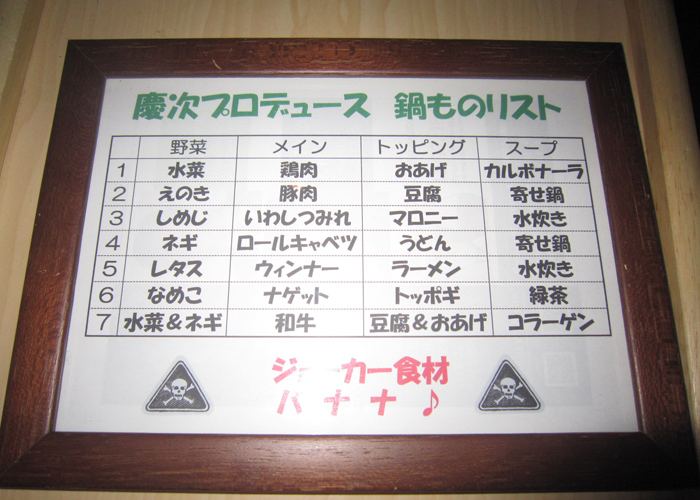 慶次プロデュース 鍋ものリスト
野菜 メイン トッピング スープ
1 水菜 鶏肉 おあげ カルボナーラ
2 えのき 豚肉 豆腐 寄せ鍋
3 しめじ いわしつみれ マロニー 水炊き
4 ネギ ロールキャベツ うどん 寄せ鍋
5 レタス ウィンナー ラーメン 水炊き
6 なめこ ナゲット トッポギ 緑茶
7 水菜&ネギ 和牛 豆腐&おあげ コラーゲン
ジョーカー食材
バナナ♪